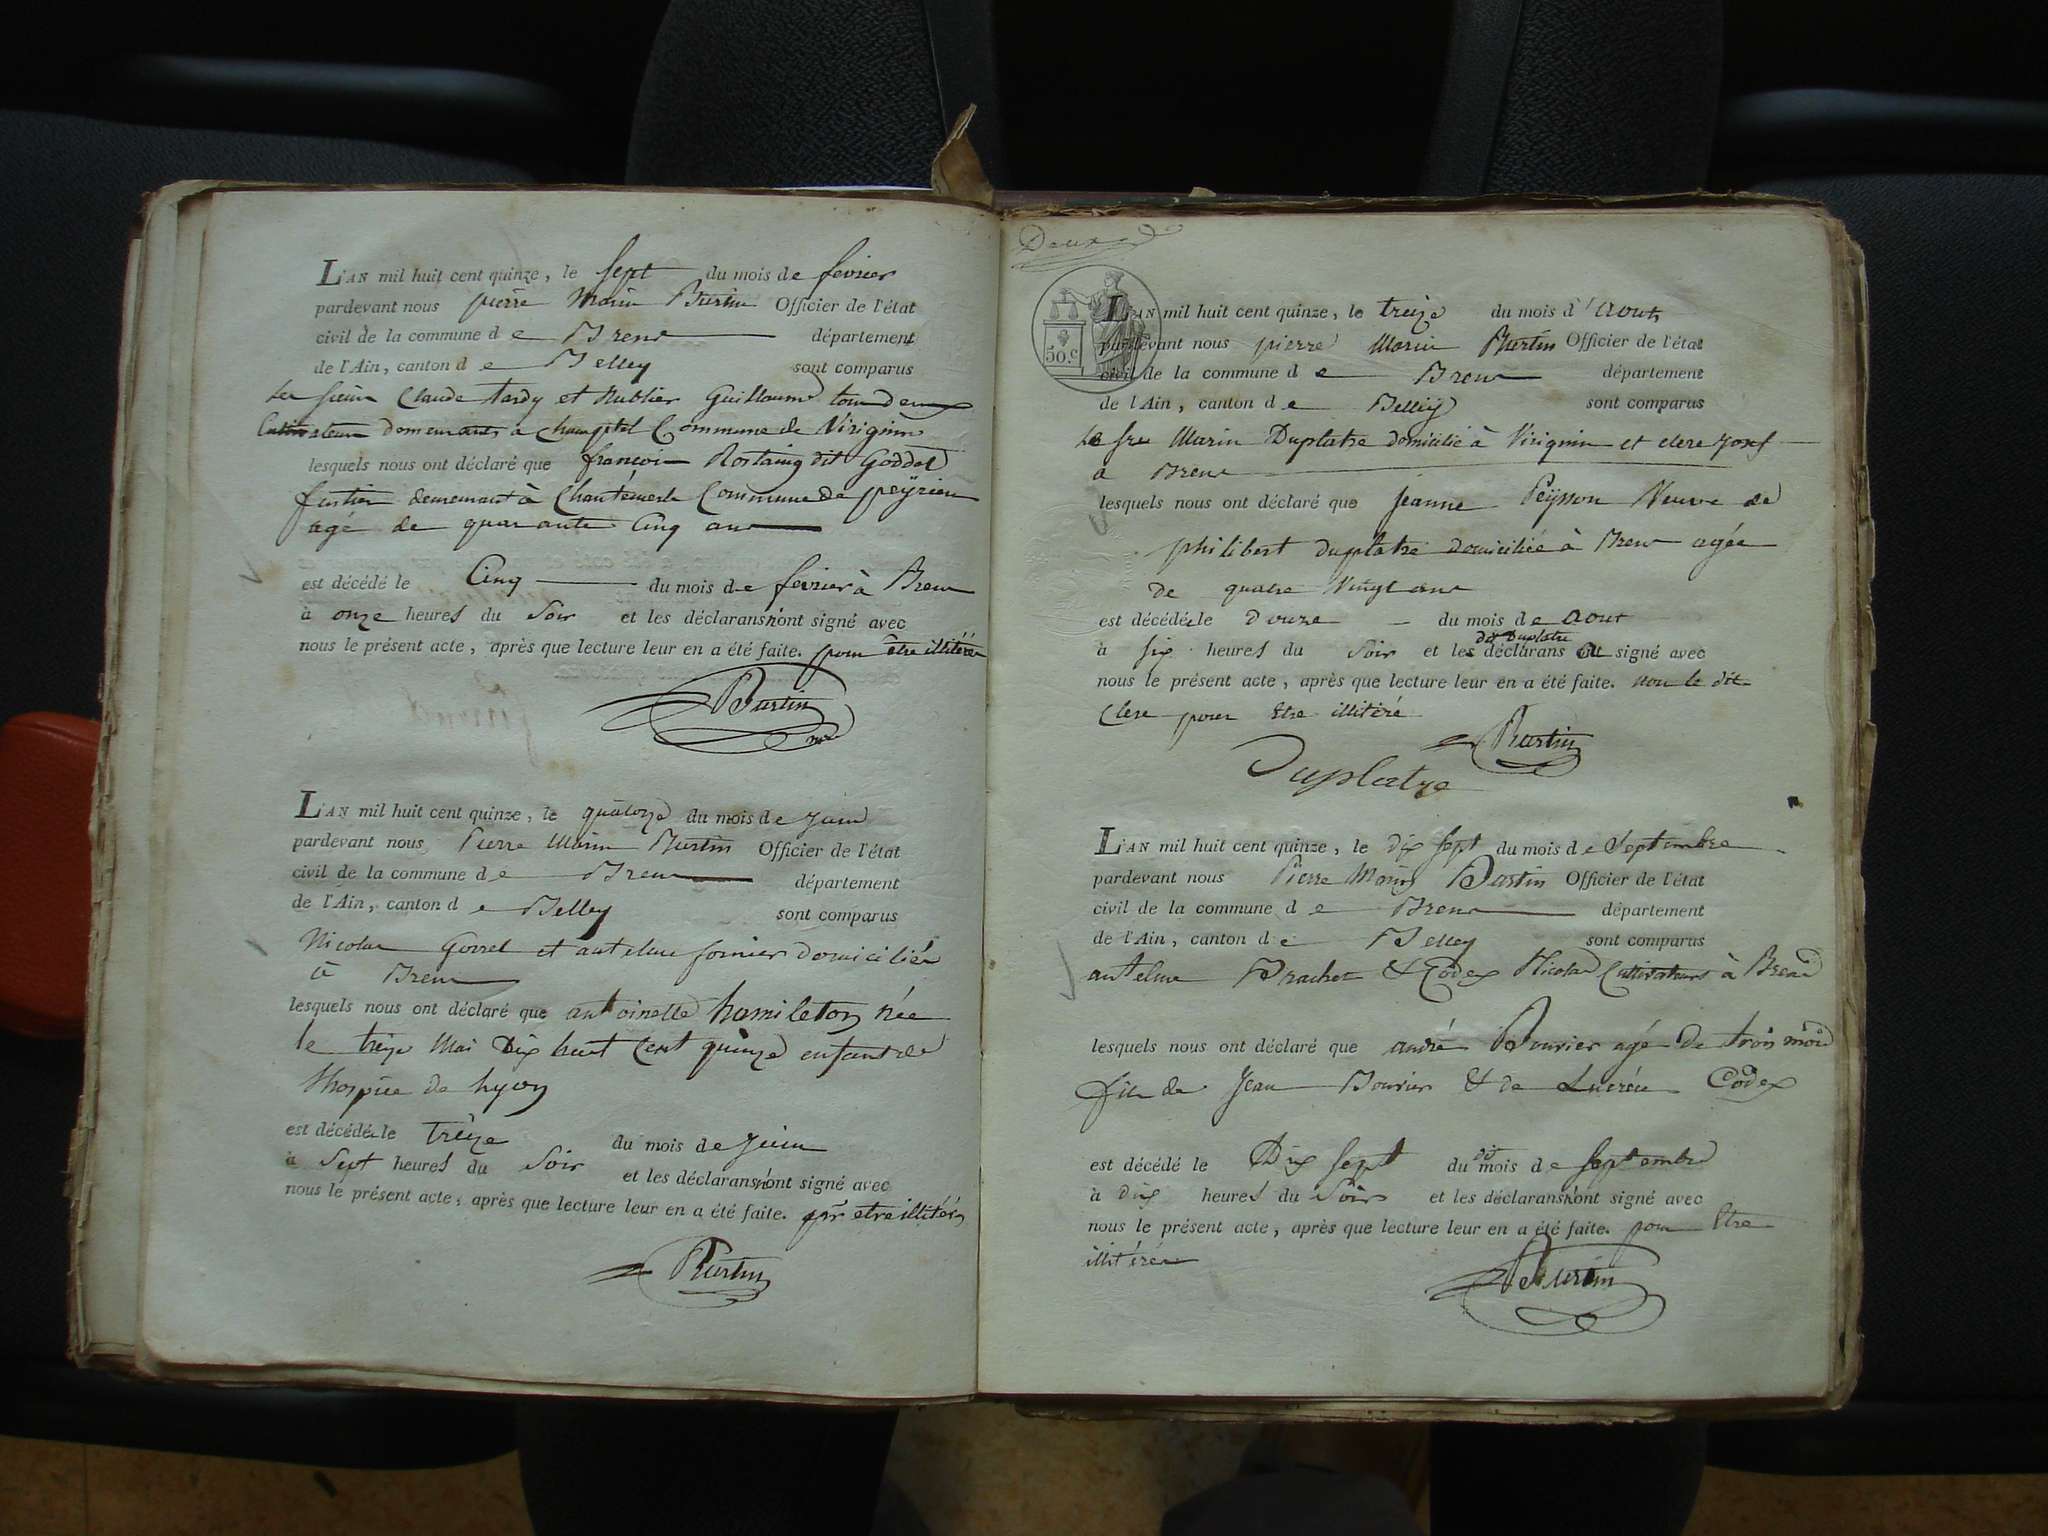 L'AN mil huit cent quinze, le sept du mois de fevrier
pardevant nous pierre Marin Burtin Officier de l'état
civil de la commune de Brens département
de l'Ain, canton de Belley sont comparus
les sieurs Claude tardy et Rublier Guillaume tous deux
Cultivateurs demeurants a Commune de Virignin
lesquels nous ont déclaré que francois Rostaing dit Goddet
demeurant à Chantemerle Commune de peÿrieu
agé de quarante Cinq ans
est décédé le Cinq du mois de fevrier à Brens
à onze heures du Soir et les déclarans n'ont signé avec
nous le présent acte, après que lecture leur en a été faite. pour être illitérés
Burtin
L'AN mil huit cent quinze, le quatorze du mois de juin
pardevant nous Pierre Marin Burtin Officier de l'état
civil de la commune de Brens département
de l'Ain, canton de Belley sont comparus
Nicolas Gorrel et antelme fornier domiciliés
à Brens
lesquels nous ont déclaré que antoinette hamileton née
le treize Mai Dix huit Cent quinze enfant de
lhospice de lyon
est décédée le treize du mois de juin
à Sept heures du Soir et les déclarans n'ont signé avec
nous le présent acte, après que lecture leur en a été faite. pr etre illitérés
Burtin
Deux
50.c
L'AN mil huit cent quinze, le treize du mois d'aout
pardevant nous pierre Marin Burtin Officier de l'état
civil de la commune de Brens département
de l'Ain, canton de Belleÿ sont comparus
Le Sr Marin Duplatre domicilié à Virignin et clere josef
a Brens
lesquels nous ont déclaré que jeanne Peÿsson Veuve de
philibert duplatre domiciliée à Brens agée
de quatre Vingt ans
est décédée le douze du mois de aout
à six heures du Soir et les dit Duplatre déclarans ont signé avec
nous le présent acte, après que lecture leur en a été faite. non le dit
Clere pour Etre illitéré
Burtin
Duplatre
L'AN mil huit cent quinze, le dix sept du mois de Septembre
pardevant nous Pierre Marin Burtin Officier de l'état
civil de la commune de Brens département
de l'Ain, canton de Belley sont comparus
antelme Brachet & Codex Nicolas Cultivateurs à Brens
lesquels nous ont déclaré que andré Bouvier agé de trois mois
fils de Jean Bouvier & de Lucrèce Codex
est décédé le Dix Sept du dit mois de septembre
à dix heures du Soir et les déclarans n'ont signé avec
nous le présent acte, après que lecture leur en a été faite. pour Etre
illitérés
Burtin